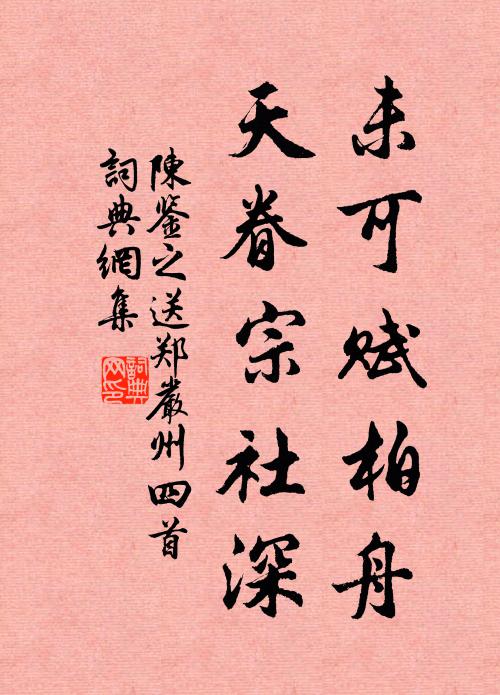 未可赋柏舟
天眷宗社深
陳鉴之送郑嚴州四首
詞典網集
詞典网印